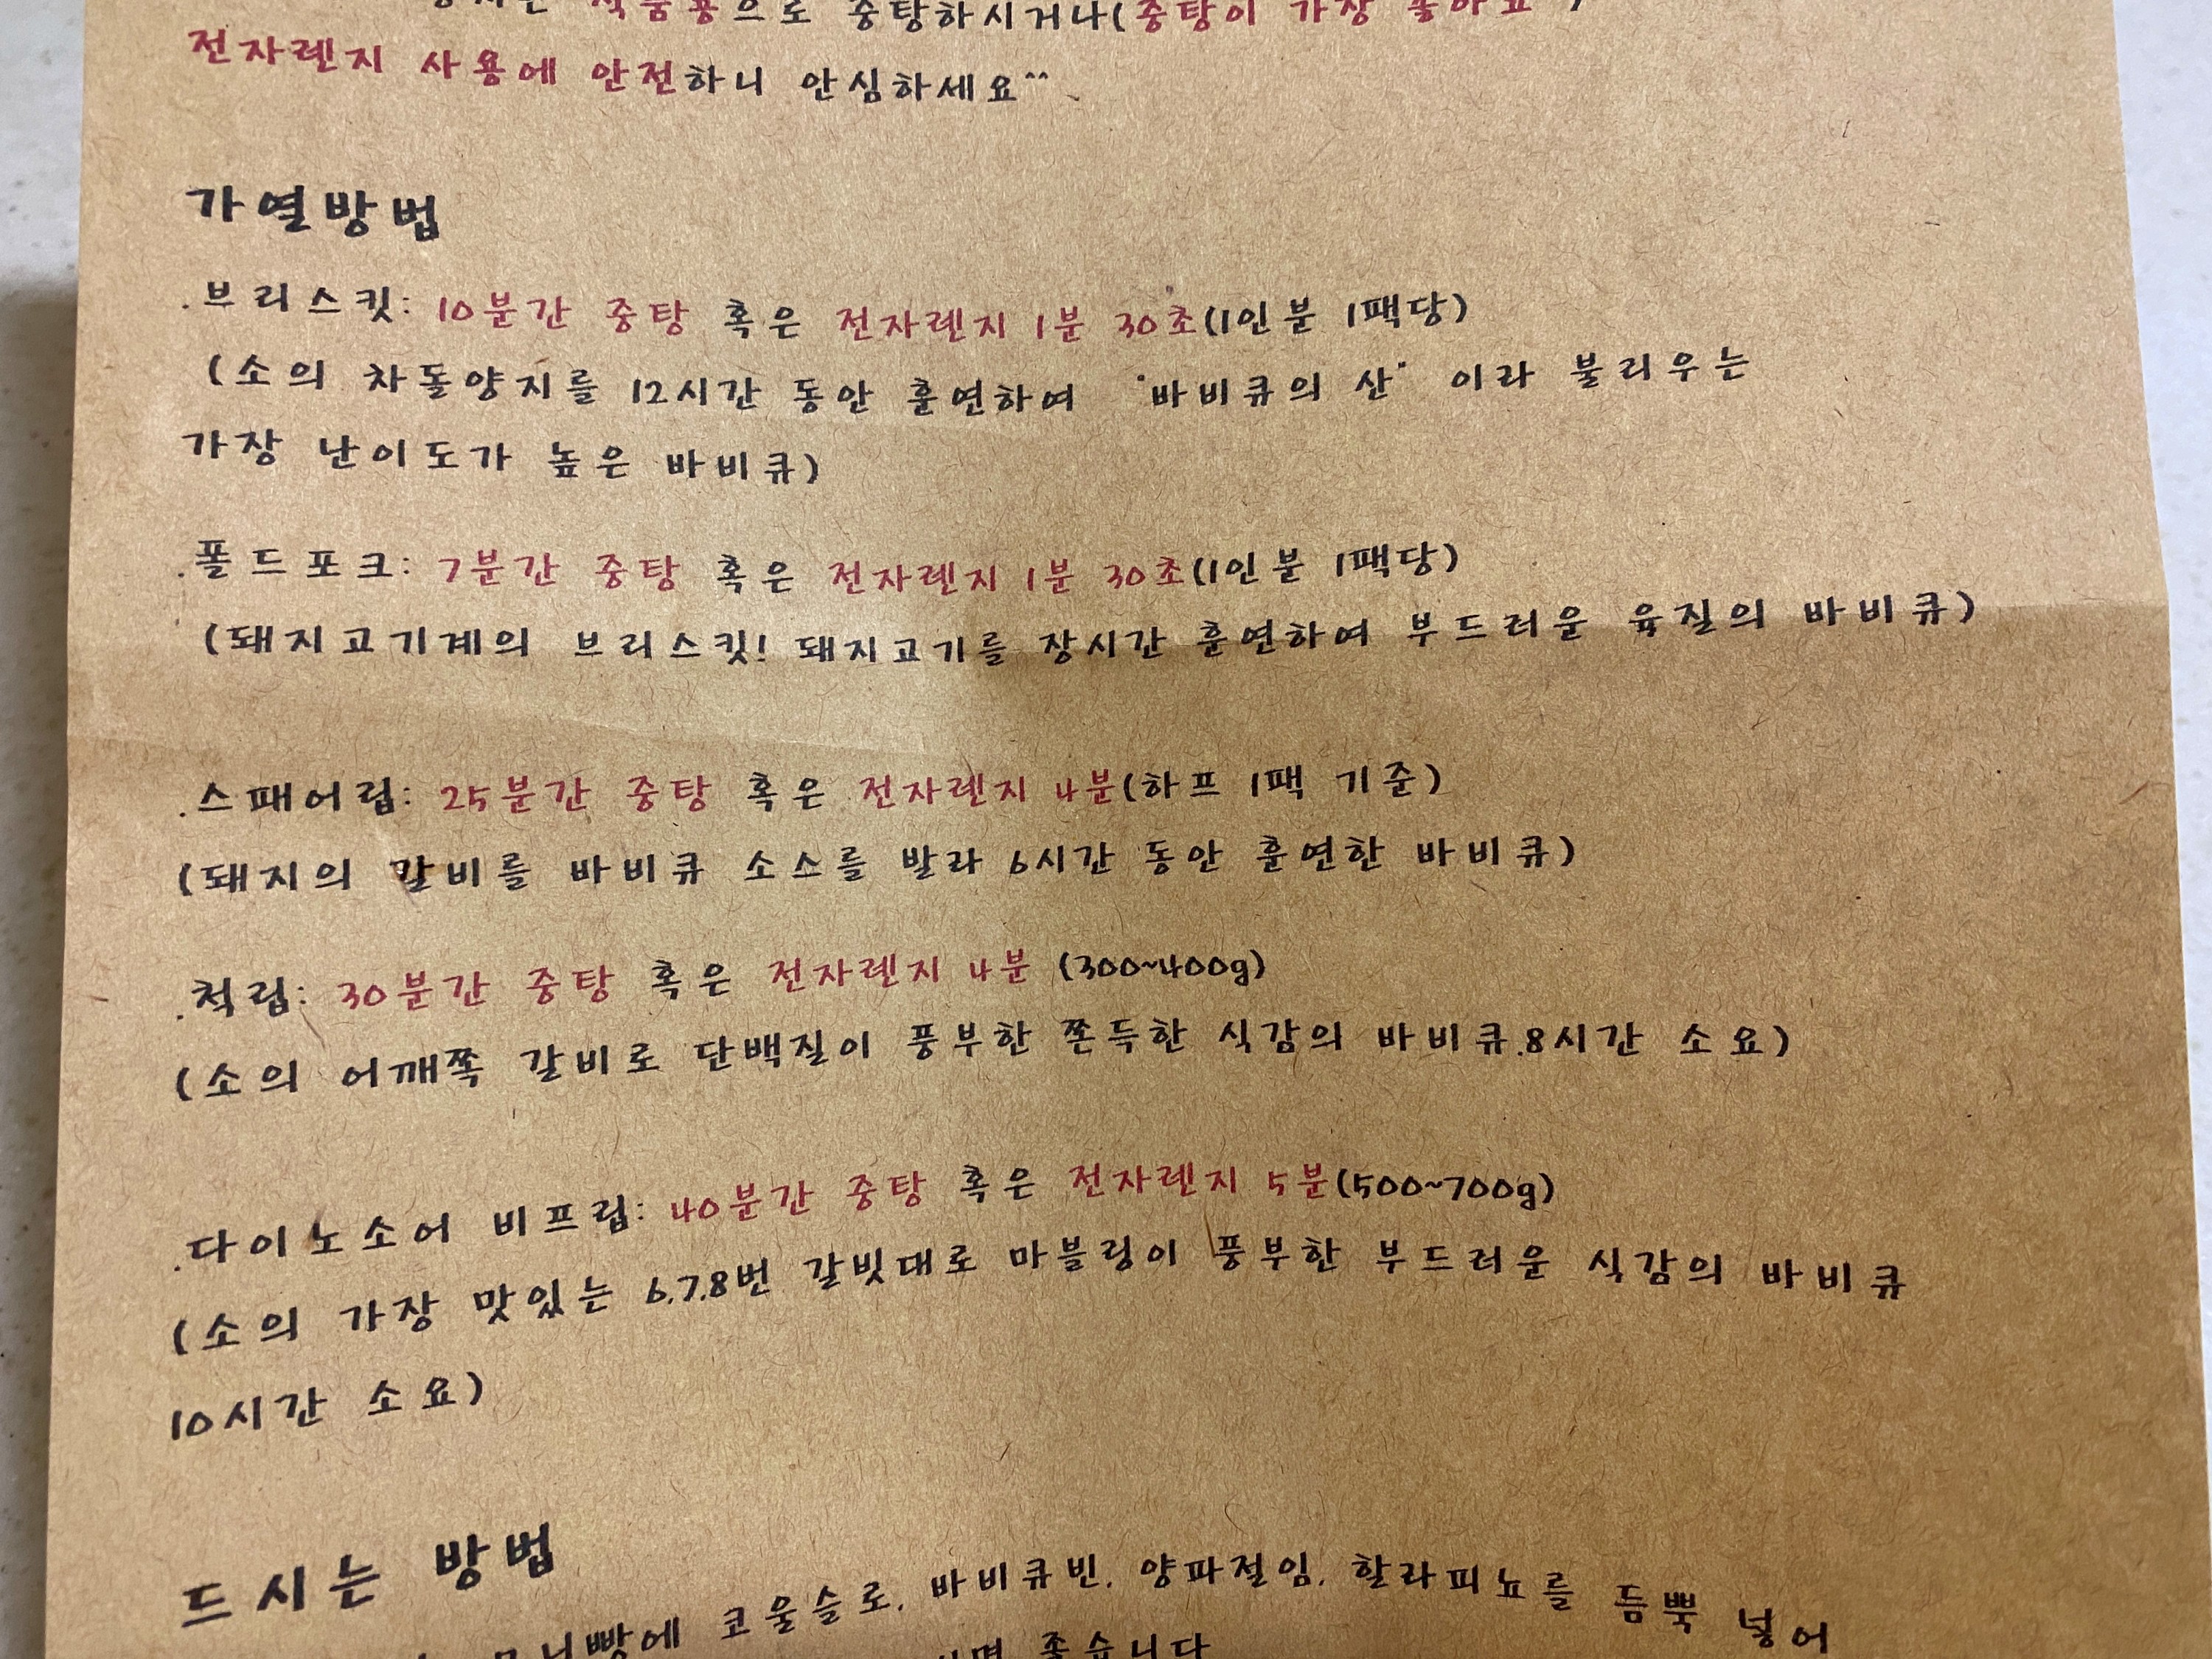 식품용으로 중탕하시거나(중탕이 가장 좋아요
전자렌지 사용에 안전하니 안심하세요^^
가열방법
.브리스킷: 10분간 중탕 혹은 전자렌지 1분 30초(1인분 1팩당)
(소의 차돌양지를 12시간 동안 훈연하여 "바비큐의 산" 이라 불리우는
가장 난이도가 높은 바비큐)
.풀드포크: 7분간 중탕 혹은 전자렌지 1분 30초(1인분 1팩당)
(돼지고기계의 브리스킷! 돼지고기를 장시간 훈연하여 부드러운 육질의 바비큐)
.스패어립: 25분간 중탕 혹은 전자렌지 4분(하프 1팩 기준)
(돼지의 갈비를 바비큐 소스를 발라 6시간 동안 훈연한 바비큐)
.척립: 30분간 중탕 혹은 전자렌지 4분 (300~400g)
(소의 어깨쪽 갈비로 단백질이 풍부한 쫀득한 식감의 바비큐.8시간 소요)
.다이노소어 비프립: 40분간 중탕 혹은 전자렌지 5분(500~700g)
(소의 가장 맛있는 6.7.8번 갈빗대로 마블링이 풍부한 부드러운 식감의 바비큐
10시간 소요)
드시는 방법
모닝빵에 코울슬로, 바비큐빈, 양파절임, 할라피뇨를 듬뿍 넣어
좋습니다